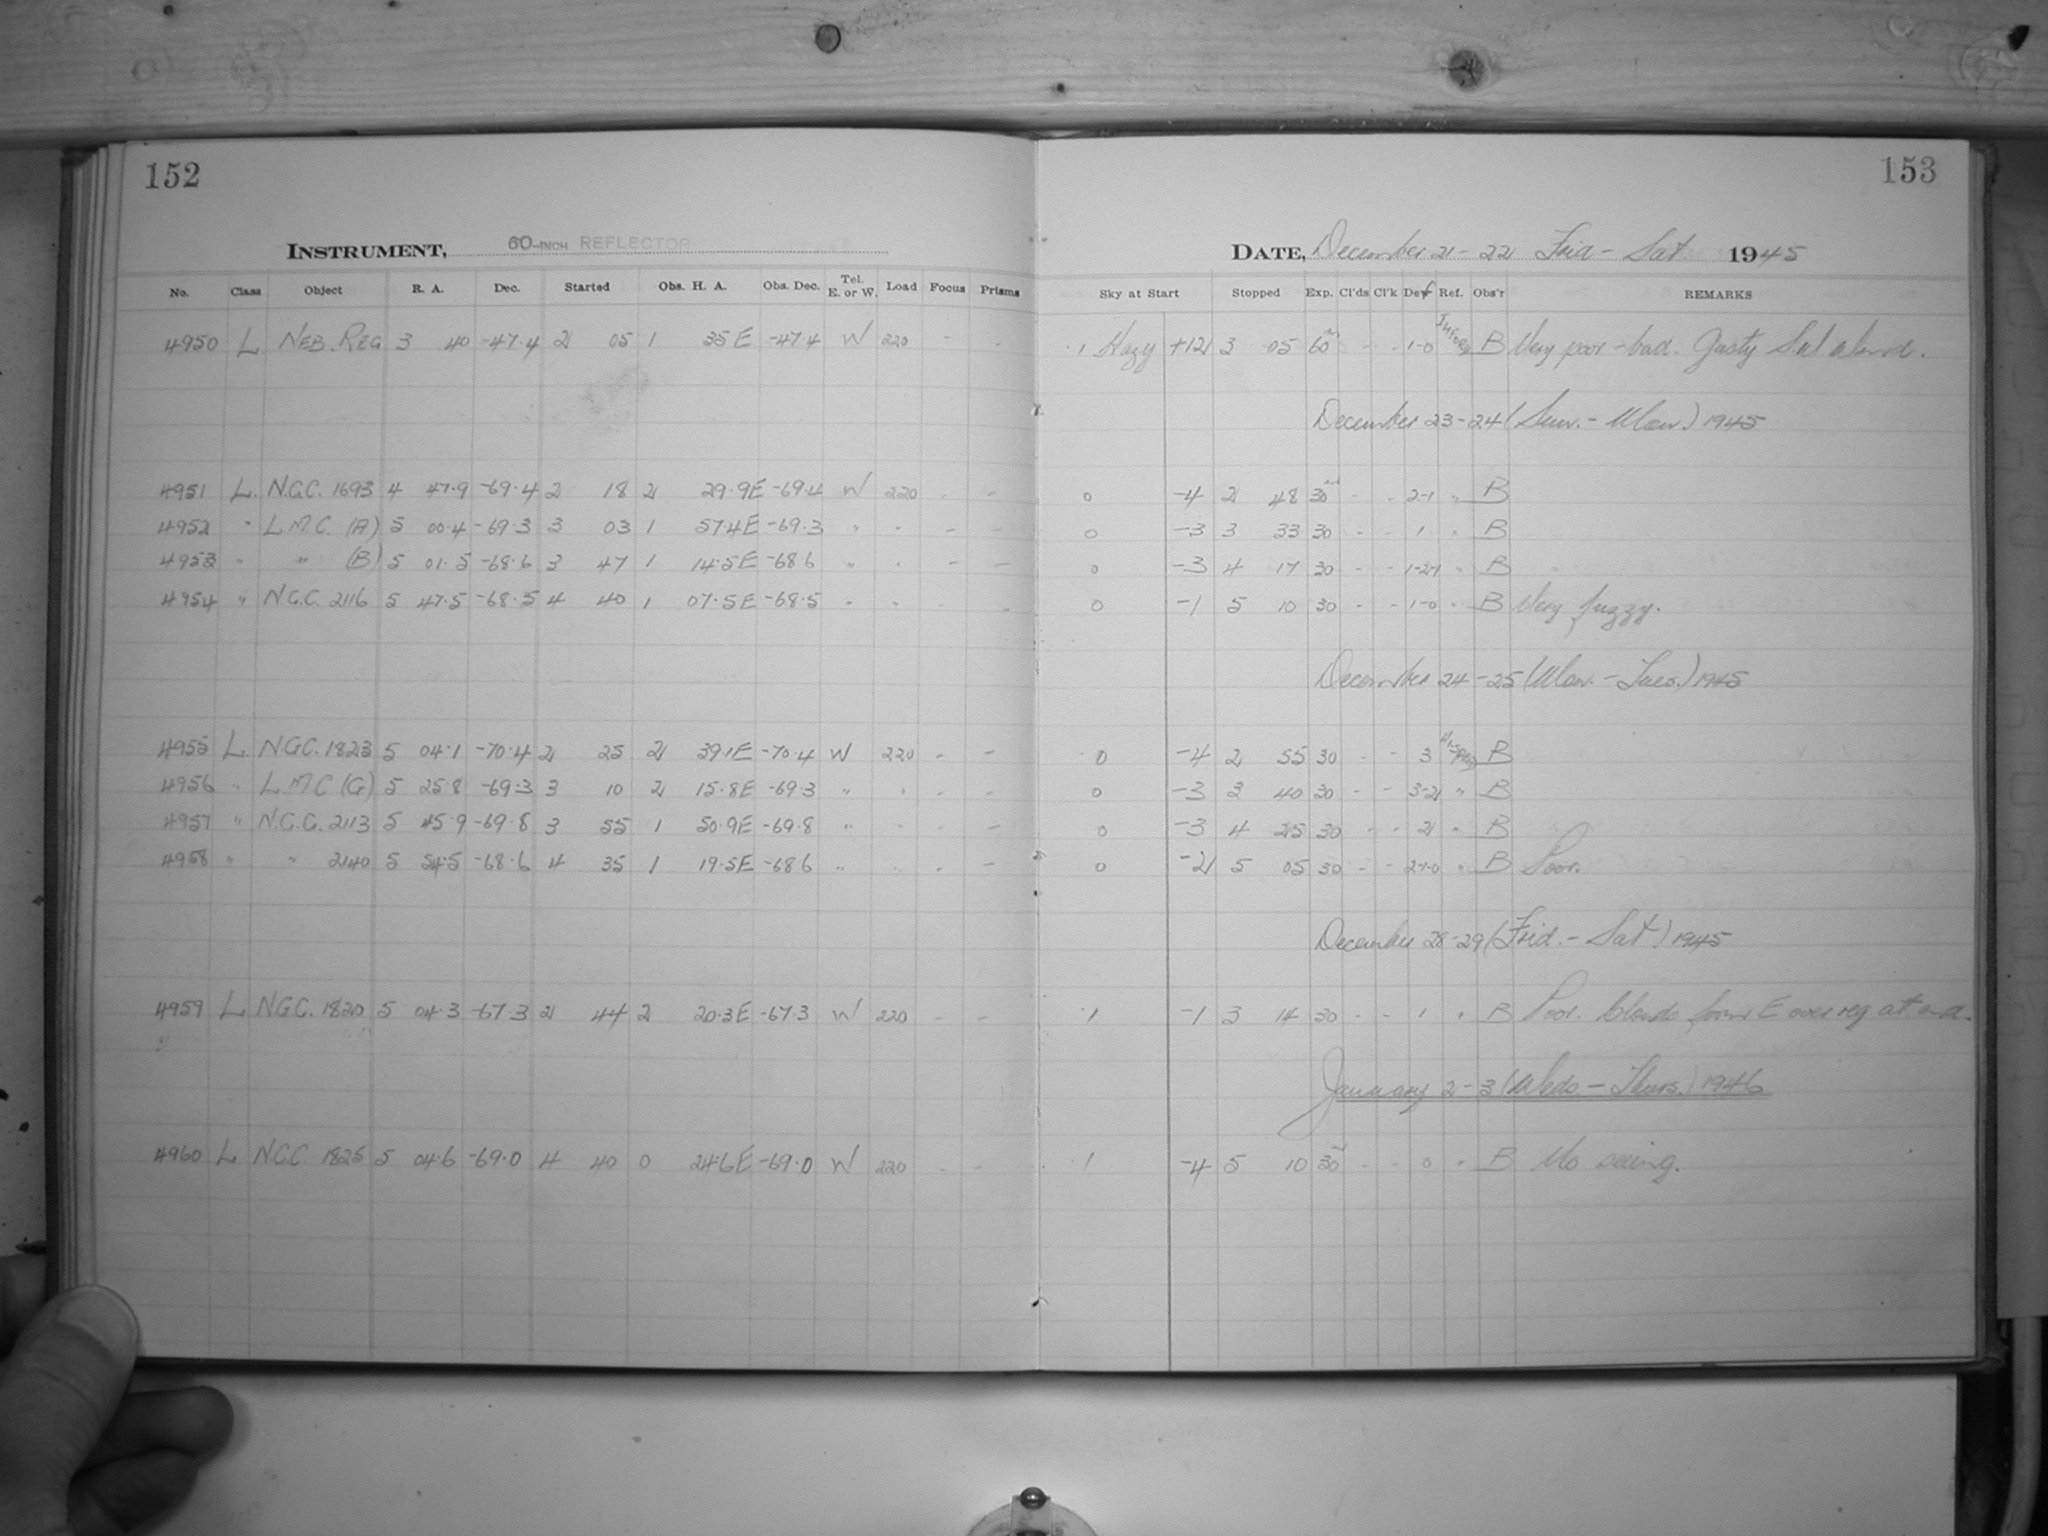 152
INSTRUMENT, 60-INCH REFLECTOR
No. Class Object R. A. Dec. Started Obs. H. A. Obs. Dec. Tel. E. or W. Load Focus Prisms
4950 L NEB. REG 3 40 -47.4 2 05 1 35 E -47.4 W 220 - -
4951 L. N.G.C. 1693 4 47.9 -69.4 2 18 2 29.9E -69.4 W 220 - -
4952 " L.M.C. (A) 5 00.4 -69.3 3 03 1 57.4E -69.3 " " - -
4953 " " (B) 5 01.5 -68.6 3 47 1 14.5E -68.6 " " - -
4954 " N.G.C. 2116 5 47.5 -68.5 4 40 1 07.5E -68.5 " " - -
4955 L. N.G.C. 1823 5 04.1 -70.4 2 25 2 39.1E -70.4 W 220 - -
4956 " L.M.C (G) 5 25.8 -69.3 3 10 2 15.8E -69.3 " " - -
4957 " N.G.C. 2113 5 45.9 -69.8 3 55 1 50.9E -69.8 " " - -
4958 " " 2140 5 54.5 -68.6 4 35 1 19.5E -68.6 " " - -
4959 L NGC. 1820 5 04.3 -67.3 2 44 2 20.3E -67.3 W 220 - -
4960 L N.G.C. 1825 5 04.6 -69.0 4 40 0 24.6E -69.0 W 220 - -
153
DATE, December 21-22 Frid - Sat 1945
Sky at Start Stopped Exp. Cl'ds Cl'k Def Ref. Obs'r REMARKS
1 Hazy +12 3 05 60m - - 1-0 B Very poor - bad. Gusty S.W. wind.
December 23-24 (Sun. - Mon.) 1945
0 -4 2 48 30m - - 2-1 " B
0 -3 3 33 30 - - 1 " B
0 -3 4 17 30 - - 1-2-1 " B
0 -1 5 10 30 - - 1-0 " B Very fuzzy.
December 24-25 (Mon. - Tues.) 1945
0 -4 2 55 30 - - 3 B
0 -3 3 40 30 - - 3-2 " B
0 -3 4 25 30 - - 2 " B
0 -2 5 05 30 - - 2-1-0 " B Poor.
December 28-29 (Frid. - Sat) 1945
1 -1 3 14 30 - - 1 " B Poor. Clouds from E over reg at end.
January 2-3 (Weds. - Thurs.) 1946
1 -4 5 10 30m - - 0 " B No seeing.